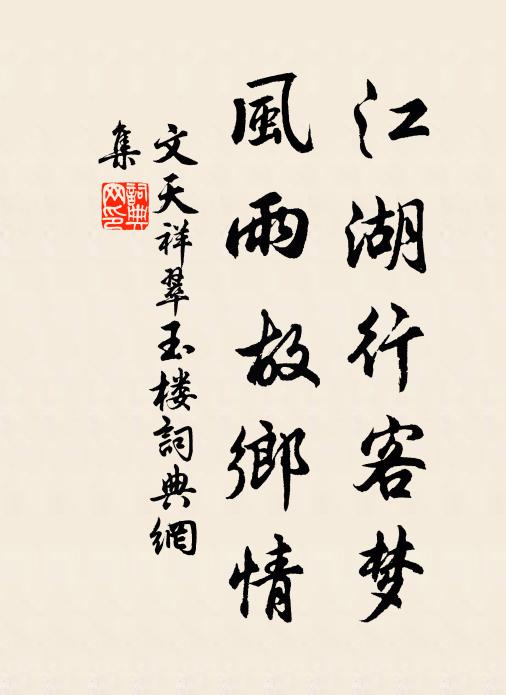 江湖行客梦
風雨故鄉情
文天祥翠玉楼詞典網
集
詞典网印